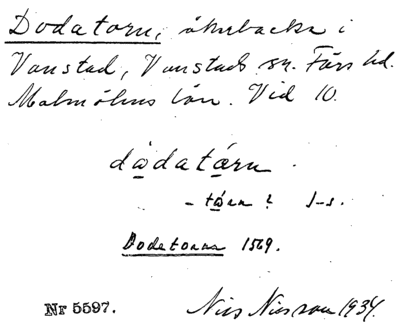 Dodatorn, åkerbacke i
Vanstad, Vanstads sn. Färs hd.
Malmöhus län. Vid 10.
dodatorn.
- torn ? J-s.
Dodatorn 1569.
Nr 5597. Nils Nilsson 1934.